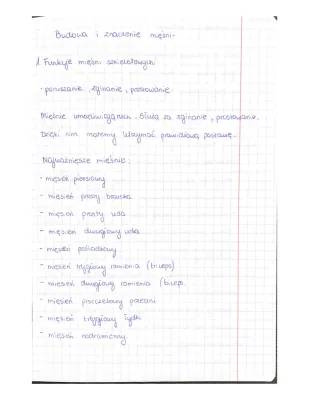 Budowa i znaczenie mięśni.
1. Funkcje mięśni szkieletowych
- poruszanie, zginanie, prostowanie
Mięśnie umożliwiają ruch. Służą za zginanie, prostowanie.
Dzięki nim możemy utrzymać prawidłową postawę.
Najważniejsze mięśnie:
- mięsień piersiowy
- mięsień prosty brzucha
- mięsień prosty uda
- mięsień dwugłowy uda
- mięsień pośladkowy
- mięsień trójgłowy ramienia (triceps)
- mięsień dwugłowy ramienia (biceps.
- mięsień piszczelowy przedni
- mięsień trójgłowy łydki
- mięsień naramienny.